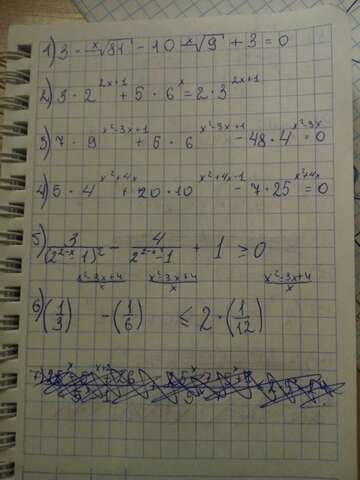 1) 3 · ˣ√81 - 10 ˣ√9 + 3 = 0
2) 3 · 2^(2x+1) + 5 · 6^x = 2 · 3^(2x+1)
3) 7 · 9^(x²-3x+1) + 5 · 6^(x²-3x+1) - 48 · 4^(x²-3x) = 0
4) 5 · 4^(x²+4x) + 20 · 10^(x²+4x-1) - 7 · 25^(x²+4x) = 0
5) 3/(2^(2-x)-1)² - 4/(2^(2-x)-1) + 1 ≥ 0
6) (1/3)^((x²-3x+4)/x) - (1/6)^((x²-3x+4)/x) ≤ 2 · (1/12)^((x²-3x+4)/x)
7)